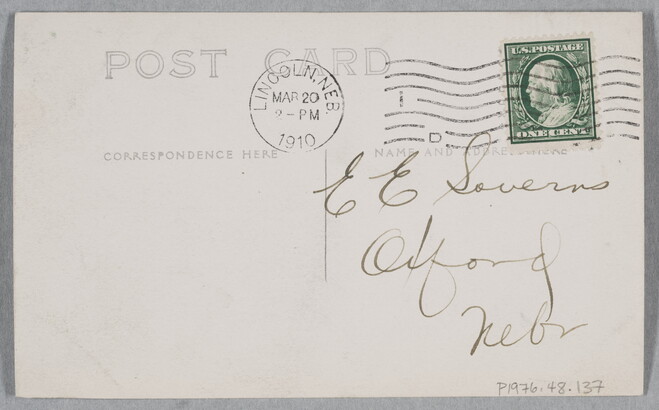 POST CARD
LINCOLN, NEB.
MAR 20
2 - PM
1910
1
D
U.S. POSTAGE
ONE CENT
CORRESPONDENCE HERE
NAME AND ADDRESS HERE
E E Soverns
Oxford
Nebr
P1976.48.137